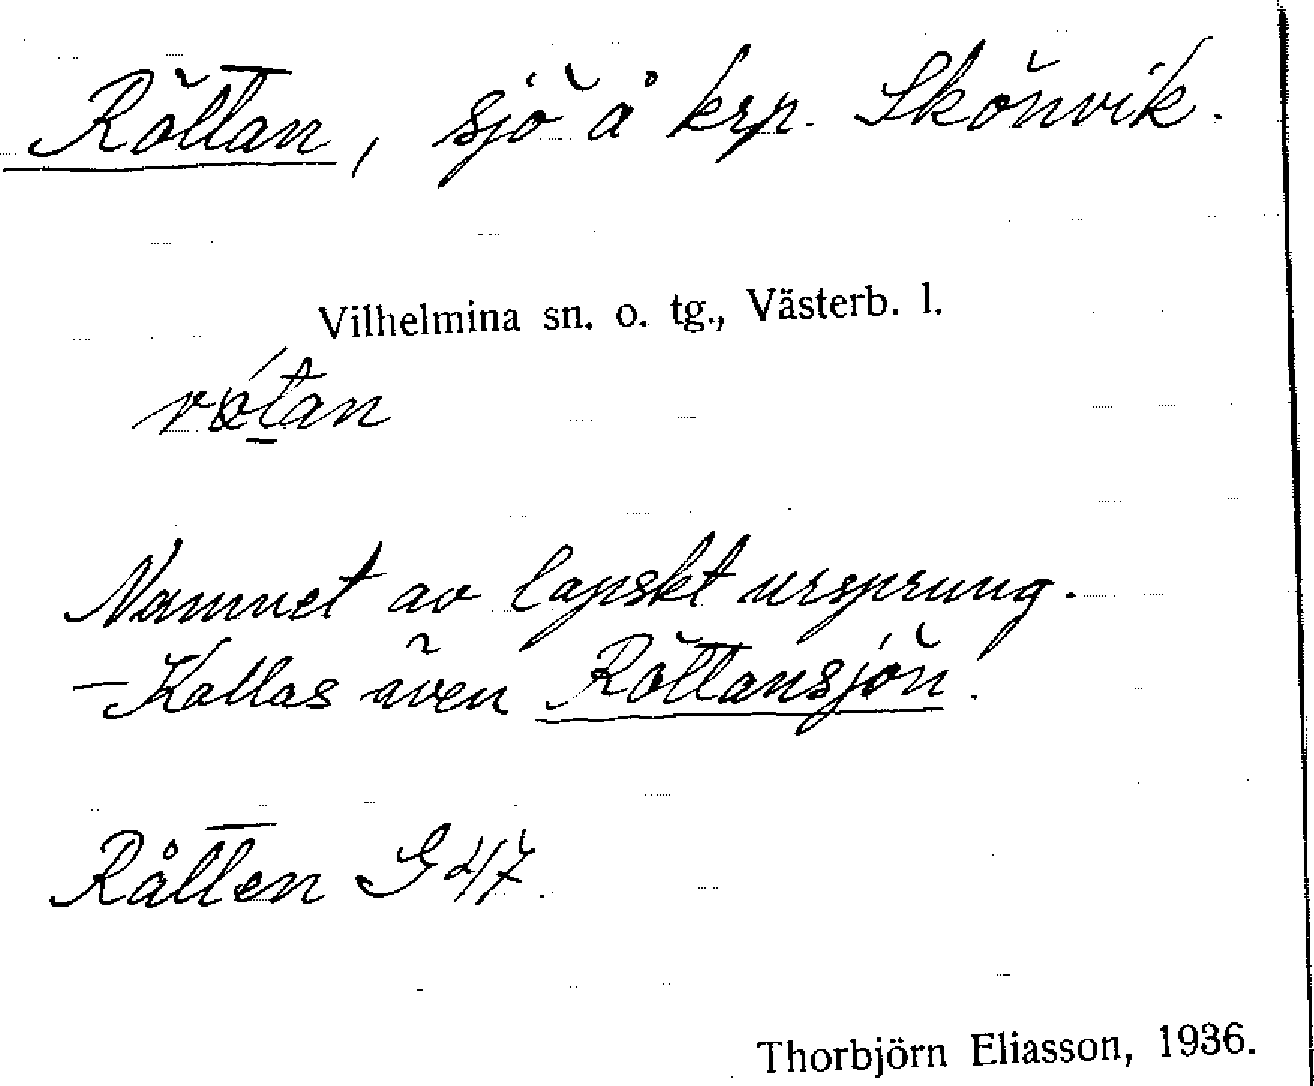 Röttan, sjö å krp. Skönvik.
Vilhelmina sn. o. tg., Västerb. l.
Namnet av lapskt ursprung.
— Kallas även Röttansjön.
Råtten G 47.
Thorbjörn Eliasson, 1936.